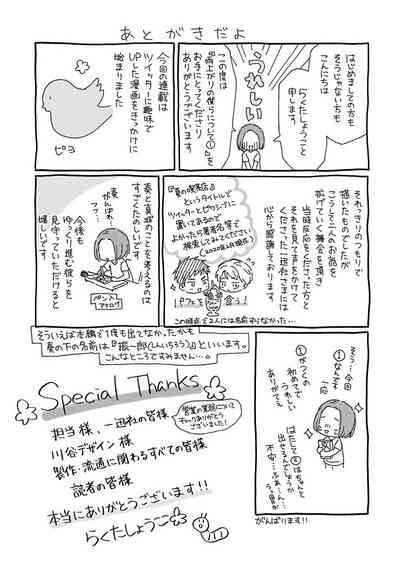 あとがきだよ
はじめましての方も
そうじゃない方も
こんにちは
らくたしょうこと
申します。
うれしい
この度は
『雨上がりの僕らについて①』を
お手にとってくださり
ありがとうございます
今回の連載は
ツイッターに趣味で
UPした漫画をきっかけに
始まりました
ピヨ
それっきりのつもりで
描いたものでしたが
こうして二人のお話を
拡げていく機会を頂き
当時反応をくださった方と
それを見て声をかけて
くださった一迅社さまには
心から感謝しております
『真の喫茶店』
というタイトルで
ツイッターとピクシブに
置いてあるので
よかったら著者名等で
検索してみてください
(2020年2月現在)
パフェを
食う!
この時点で2人には名前すらなかった…
奏と真城のことを考えるのは
すごくたのしいです
奏
がんばれ
フフ…
ペンまで
アナログ
今後も
ゆっくり進む彼らを
見守っていただけると
嬉しいです
そういえば本編で1度も出てなかったかも
奏の下の名前は『振一郎(しんいちろう)』といいます。
こんなところですみません…。
そう…今回
①なんです
一応
①がつくの
初めてで
うれしい
ありがてえ
はたして②はちゃんと
出せるんでしょうか
不安…ふぁ…ん…
うっ胃が
がんばります!!
Special Thanks
担当様、一迅社の皆様
営業の業務について
チェックありがとう
ございました!
川谷デザイン様
製作・流通に関わるすべての皆様
読者の皆様
本当にありがとうございます!!
らくたしょうこ